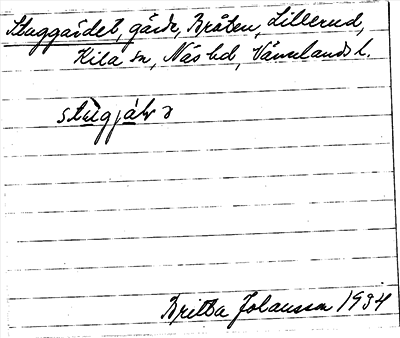 Stuggärdet, gärde, Bråten, Lillerud,
Kila sn, Näs hd, Värmlands l.
stu̇gjálɐ
Britta Johansson 1934